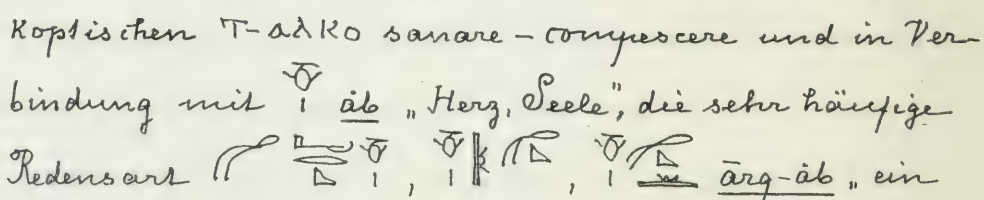 Koptischen Ⲧ-ⲁⲗⲕⲟ sanare – compescere und in Ver-
bindung mit 𓄣𓏤 áb „Herz, Seele“, die sehr häufige
Redensart , , ārq-áb „ein